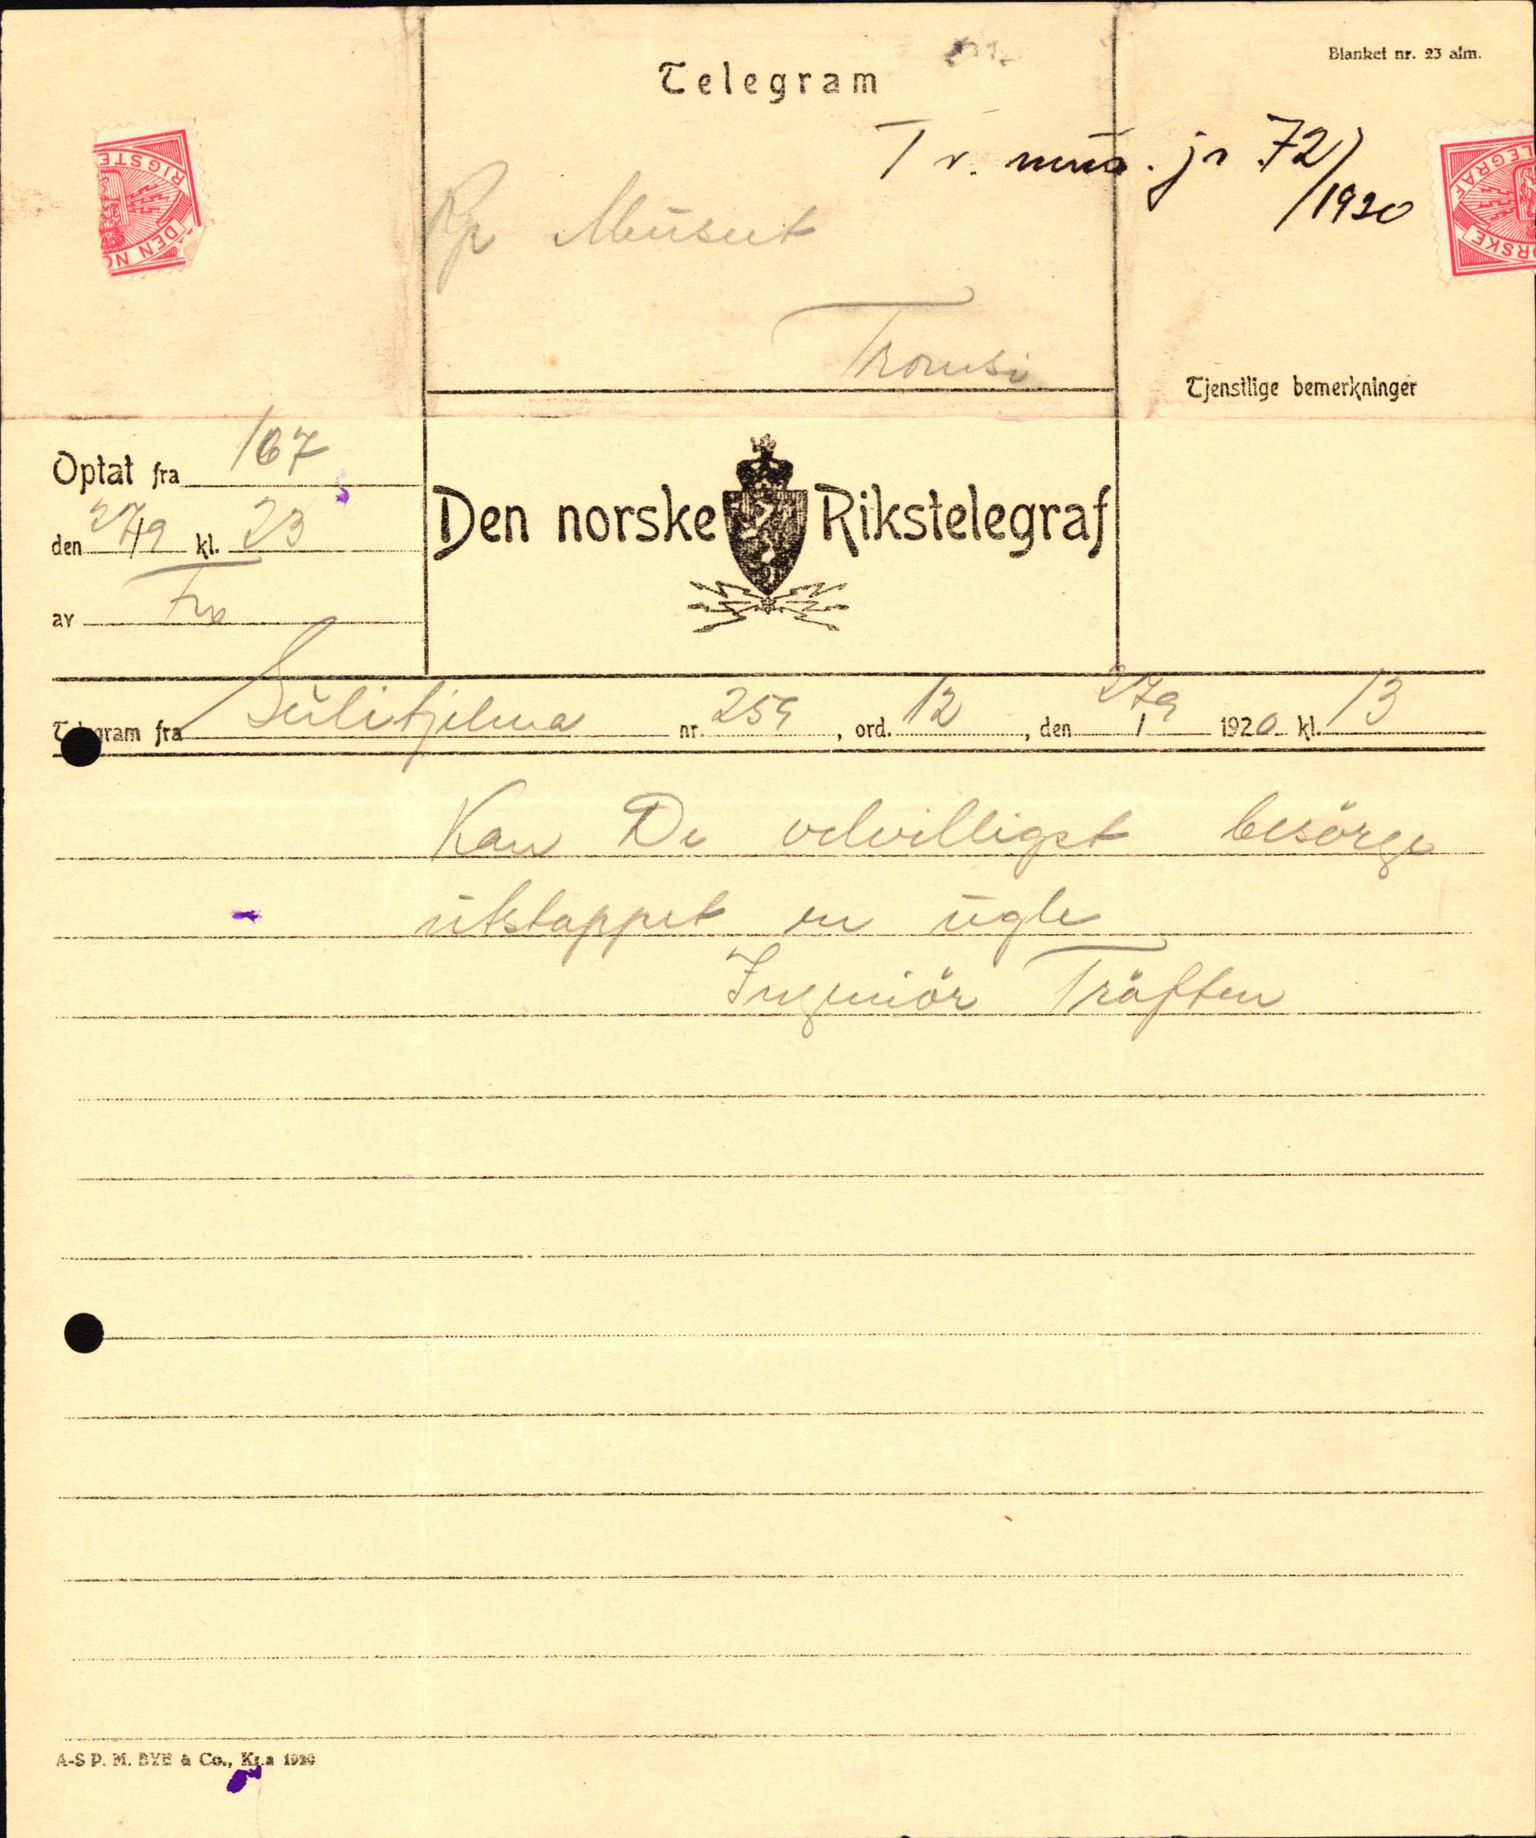 Blanket nr. 23 alm.
Telegram
Tr. mus. jr 72/
/1920
Rp Müseet
Tromsö
RIGSTE
DEN NO
LEGRAF
ORSKE
Tjenstlige bemerkninger
Optat fra 167
den 27/9 kl. 23
av
Den norske Rikstelegraf
Telegram fra Sülitjelma nr. 259, ord. 12, den 27/9 1920 kl. 13
Kan De velvilligst besörge
ütstoppet en ügle
Ingeniör Träften
A-S P. M. BYE & Co., Kr.a 1920